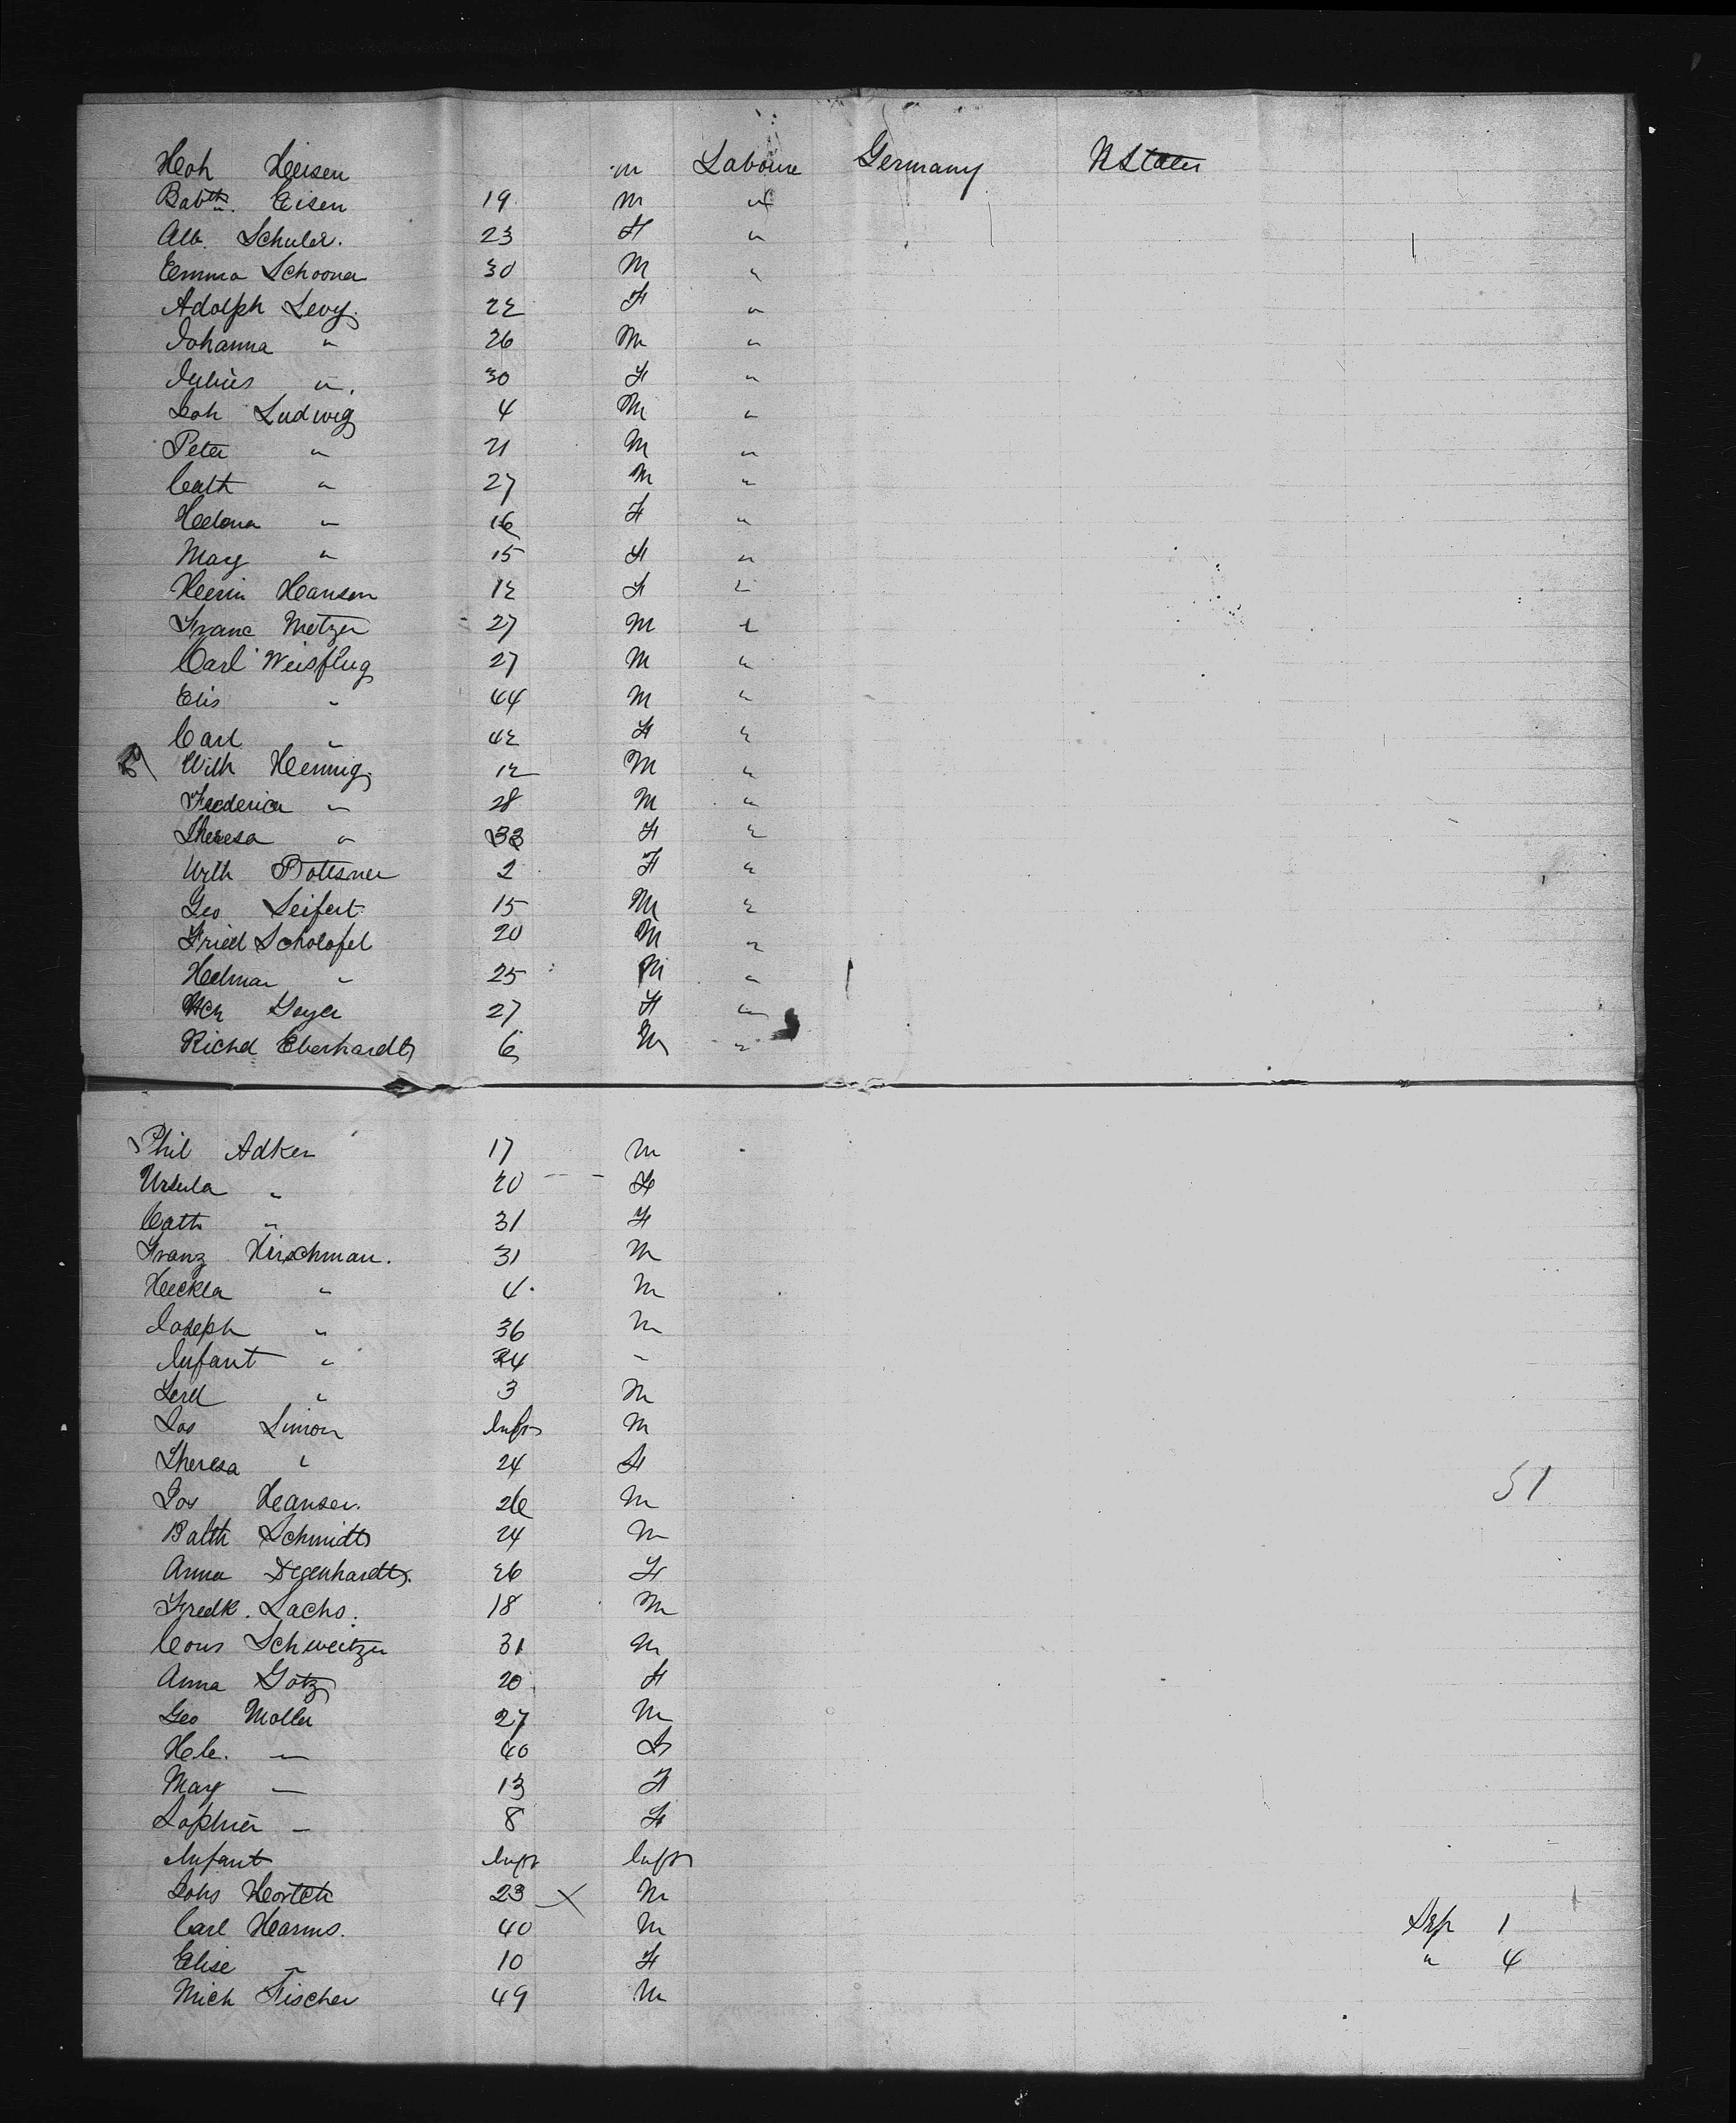 Hch Heisen m Laboure Germany U States
Babth Eisen 19 M "
Alb. Schuler. 23 F "
Emma Schooner 30 M "
Adolph Levy. 22 F "
Johanna " 26 M "
Julius " 30 F "
Joh Ludwig 4 M "
Peter " 21 M "
Cath " 27 M "
Helena " 16 F "
Mary " 15 F "
Hein Hansen 12 F "
Franc Metzer 27 M "
Carl Weisflug 27 M "
Elis " 44 M "
Carl " 42 F "
Wilh Hennig. 12 M "
Frederica " 28 M "
Theresa " 33 F "
Wilh 2 F "
Geo Seifert 15 M "
Fried Scholofel 20 M "
Helmar " 25 M "
Hch Geyer 27 F "
Richd Eberhardt 6 M "
Phil Adker 17 m
Ursula " 20 F
Cath " 31 F
Franz Hirschman. 31 m
Heckla " 4 m
Joseph " 36 m
Infant " 24 "
Ferd " 3 m
Jos Simon Inft m
Theresa " 24 F
Jos Hansen. 26 m 51
Balth Schmidt 24 m
Anna Degenhardt. 26 F
Fredk. Sachs. 18 m
Cons Schweitzer 31 m
Anna Götz 20 F
Geo Moller 27 m
Hele. " 40 F
Mary " 13 F
Sophier " 8 F
Infant Inft Inft
Johs Hortch 23 X m
Carl Harms. 40 m 1
Elise " 10 F " 4
Mich Fischer 49 m